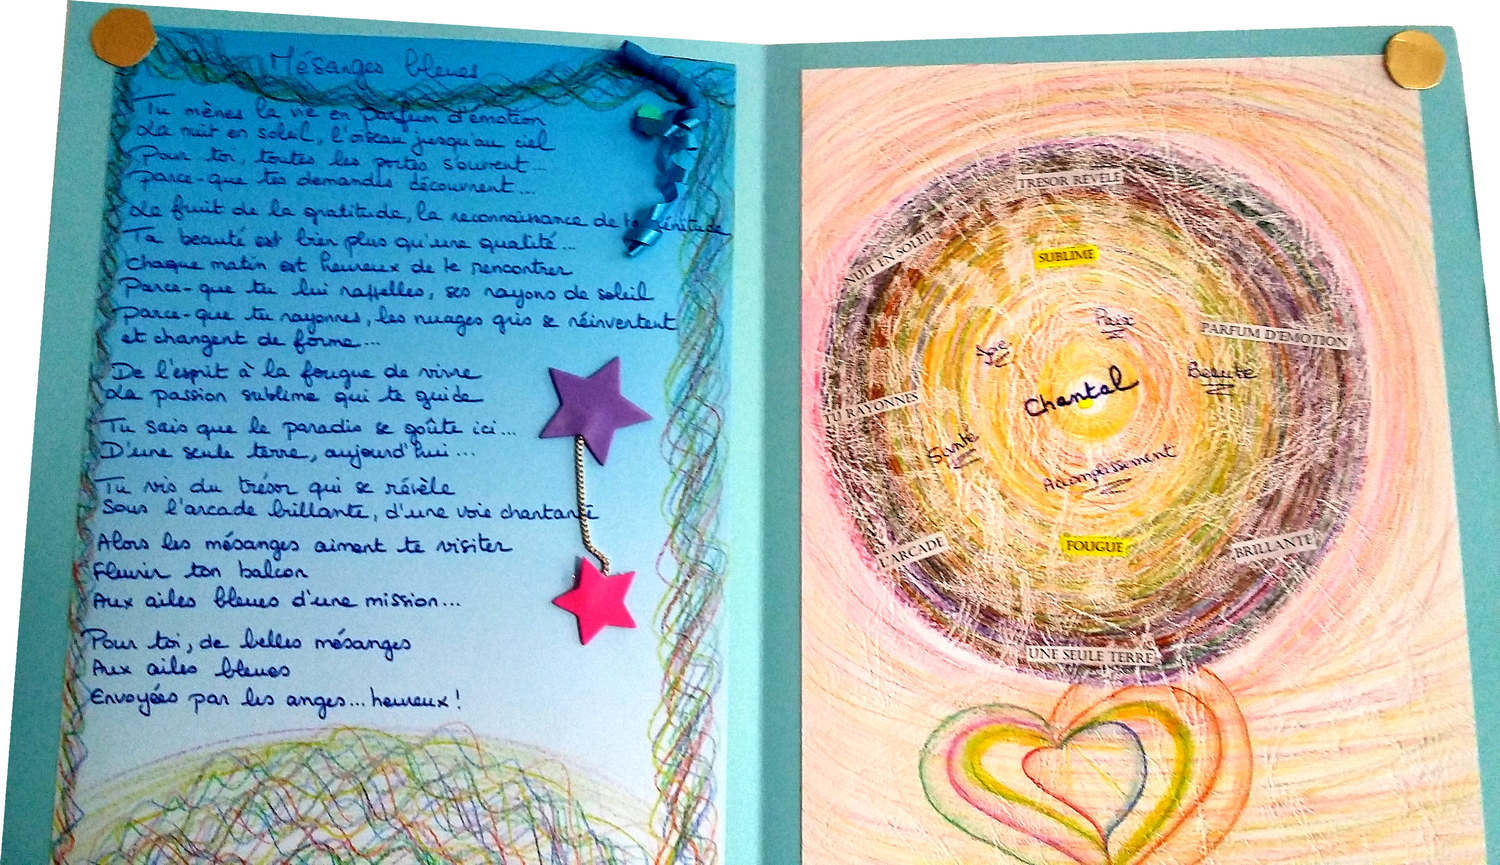 Mésanges bleues
Tu mènes la vie en parfum d'émotion
La nuit en soleil, l'oiseau jusqu'au ciel
Pour toi, toutes les portes s'ouvrent...
Parce-que tes demandes découvrent...
Le fruit de la gratitude, la reconnaissance de la
Ta beauté est bien plus qu'une qualité...
Chaque matin est heureux de te rencontrer
Parce-que tu lui rappelles, ses rayons de soleil
Parce-que tu rayonnes, les nuages gris se réinventent
et changent de forme...
De l'esprit à la fougue de vivre
La passion sublime qui te guide
Tu sais que le paradis se goûte ici...
D'une seule terre, aujourd'hui...
Tu vis du trésor qui se révèle
Sous l'arcade brillante, d'une voie chantante
Alors les mésanges aiment te visiter
Fleurir ton balcon
Aux ailes bleues d'une mission...
Pour toi, de belles mésanges
Aux ailes bleues
Envoyées par les anges... heureux !
TRÉSOR RÉVÉLÉ
NUIT EN SOLEIL
SUBLIME
PARFUM D'ÉMOTION
Paix
Joie
Beauté
Chantal
TU RAYONNES
Santé
Accomplissement
L'ARCADE
FOUGUE
BRILLANTE
UNE SEULE TERRE